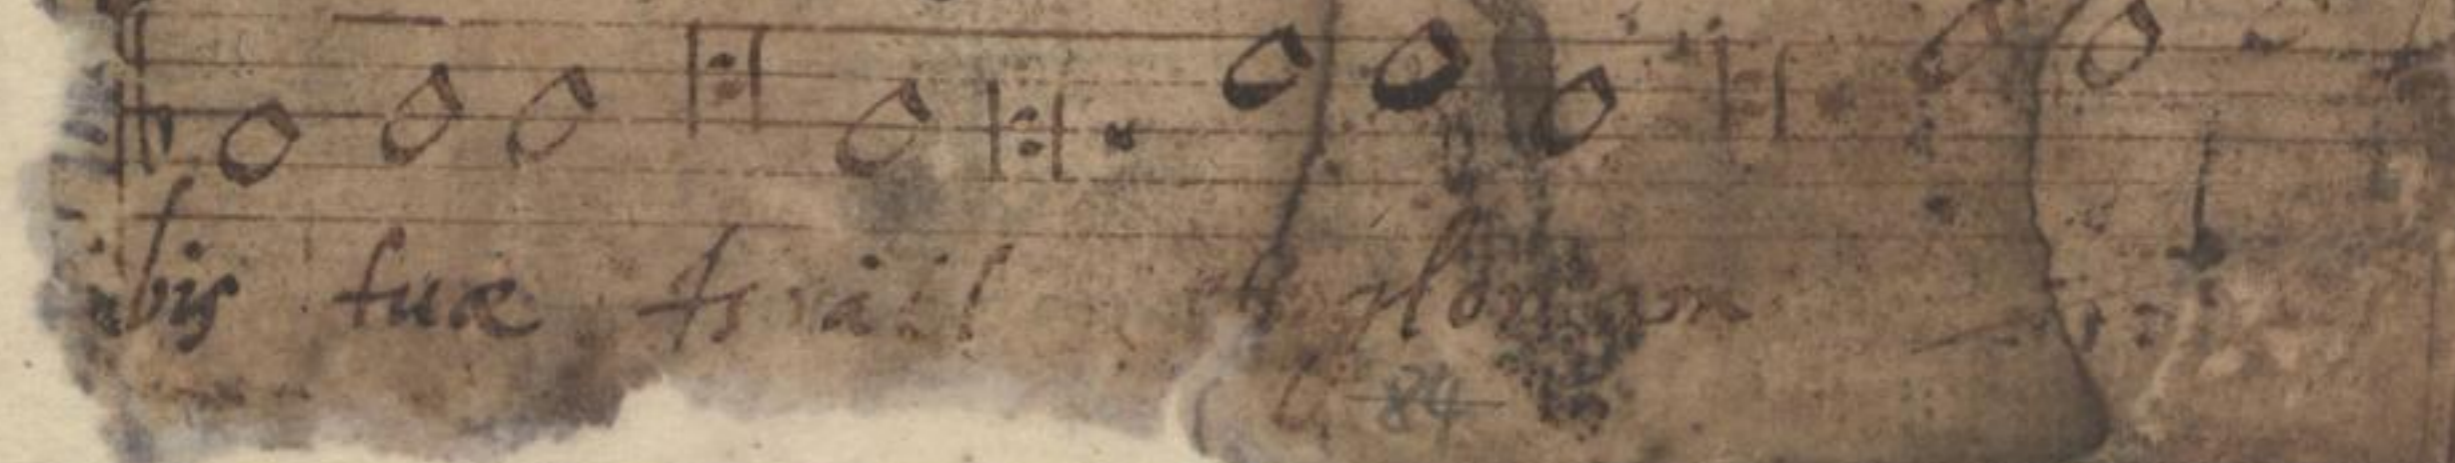 bis tuæ Israel gloriam
84